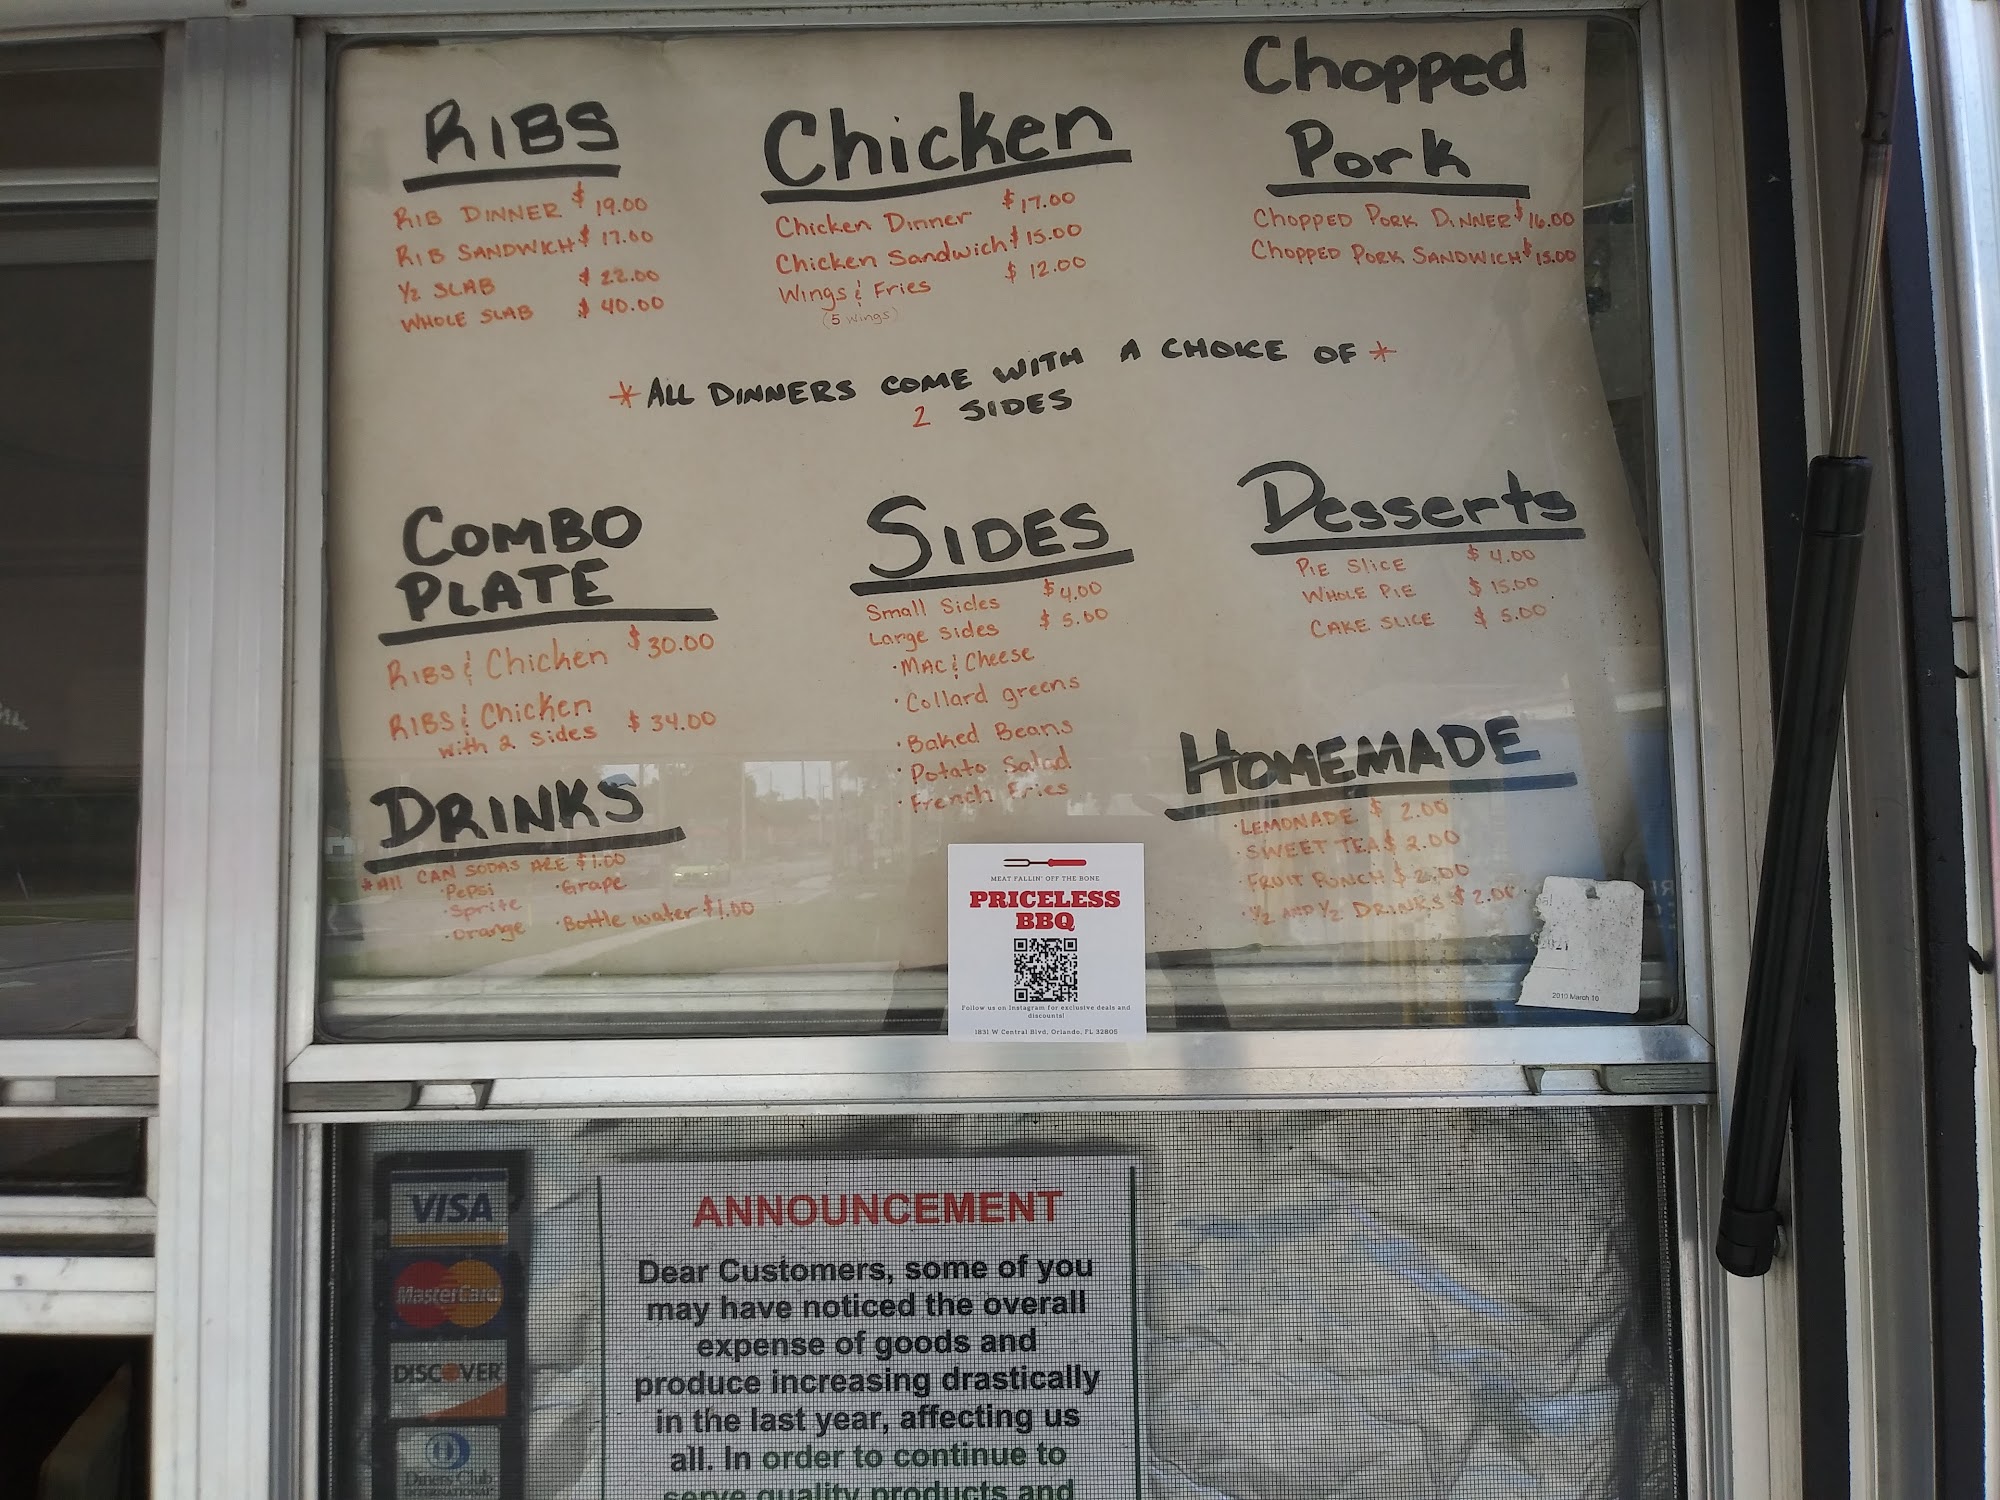 RIBS
RIB DINNER $ 19.00
RIB SANDWICH $ 17.00
1/2 SLAB $ 22.00
WHOLE SLAB $ 40.00
Chicken
Chicken Dinner $17.00
Chicken Sandwich $15.00
Wings & Fries $ 12.00
(5 wings)
Chopped
Pork
CHOPPED PORK DINNER $16.00
CHOPPED PORK SANDWICH $15.00
*ALL DINNERS COME WITH A CHOICE OF *
2 SIDES
COMBO
PLATE
RIBS & Chicken $30.00
RIBS & Chicken
with 2 sides $ 34.00
SIDES
Small Sides $4.00
Large Sides $ 5.00
·MAC & Cheese
·Collard greens
·Baked Beans
·Potato Salad
·French Fries
Desserts
PIE SLICE $ 4.00
WHOLE PIE $ 15.00
CAKE SLICE $ 5.00
DRINKS
*All CAN SODAS ARE $1.00
·Pepsi ·Grape
·Sprite
·Orange ·Bottle water $1.00
HOMEMADE
·LEMONADE $ 2.00
·SWEET TEA $ 2.00
·FRUIT PUNCH $ 2.00
·1/2 AND 1/2 DRINKS $ 2.00
MEAT FALLIN' OFF THE BONE
PRICELESS
BBQ
Follow us on Instagram for exclusive deals and
discounts!
1831 W Central Blvd, Orlando, FL 32805
2021
2010 March 10
VISA
MasterCard
DISCOVER
Diners Club
INTERNATIONAL
ANNOUNCEMENT
Dear Customers, some of you
may have noticed the overall
expense of goods and
produce increasing drastically
in the last year, affecting us
all. In order to continue to
serve quality products and